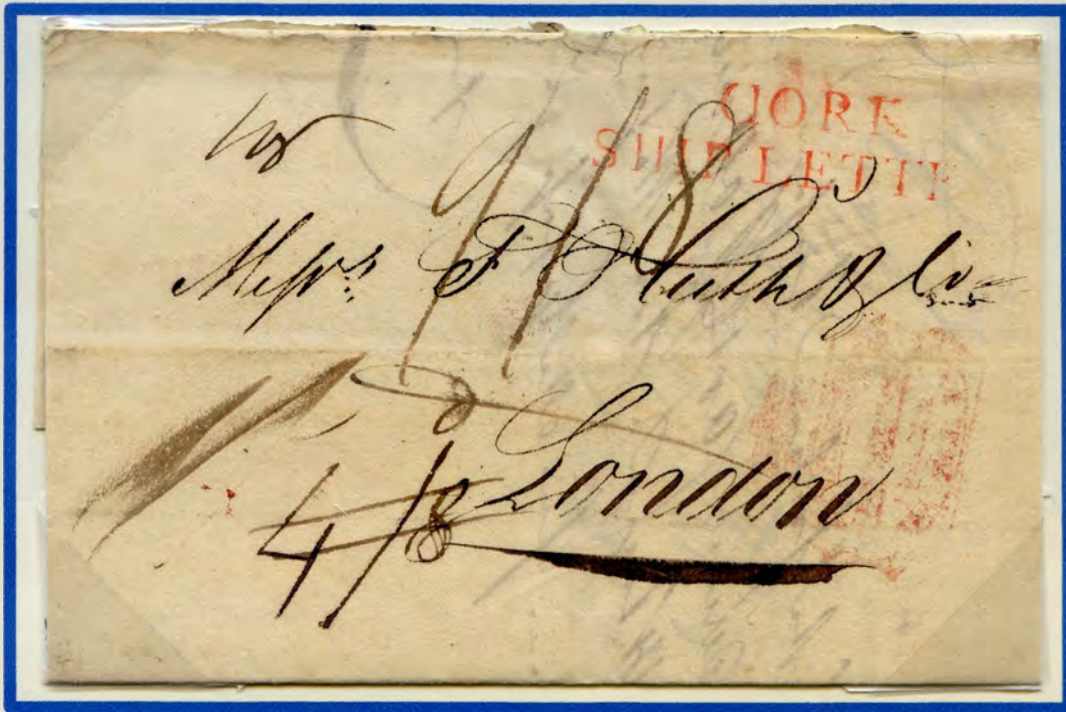 CORK
SHIP LETTE
9/8
Mess.rs F Huth & Co
London
4/8